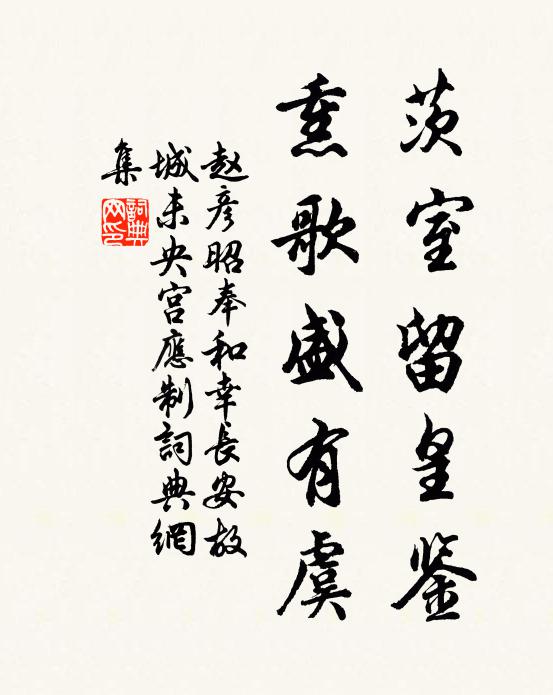 茨室留皇鉴
熏歌盛有虞
赵彦昭奉和幸長安故
城未央宫應制詞典網
集
詞典
网印